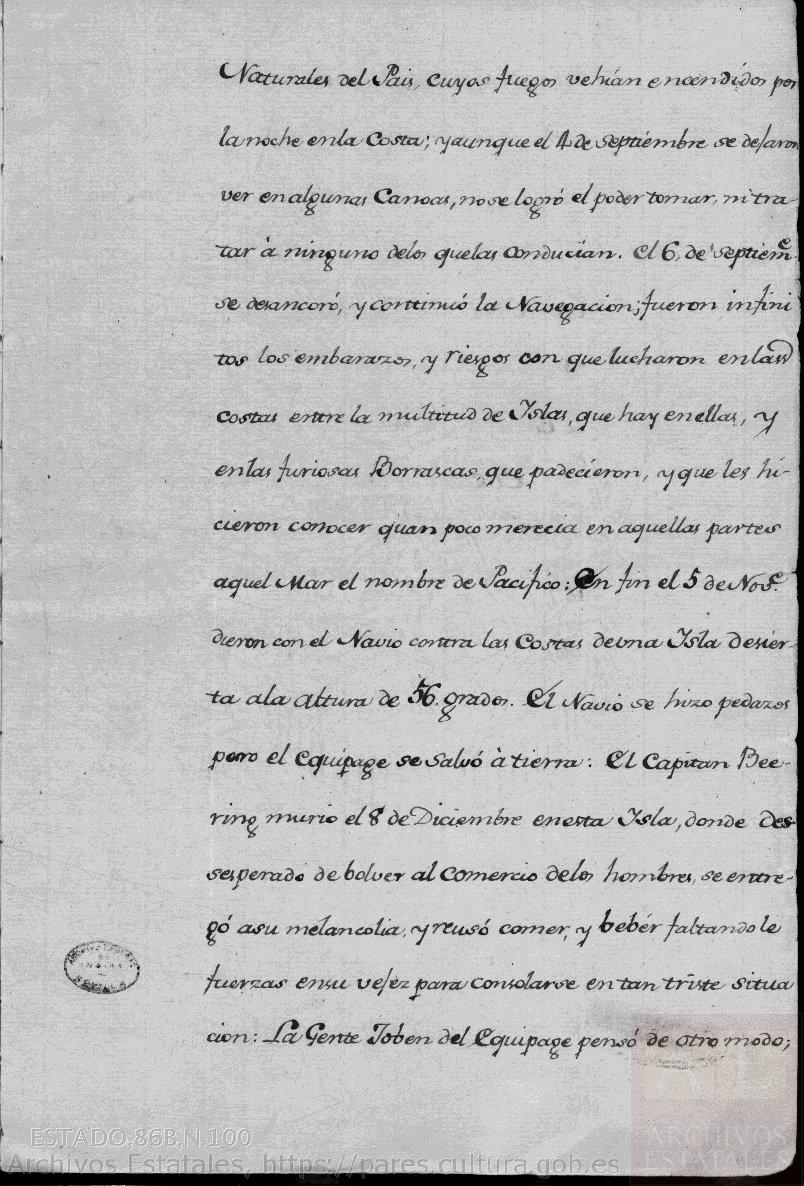 Naturales del Pais, cuyos fuegos vehian encendidos por
la noche en la Costa; y aunque el 4 de Septiembre se dejaron
ver en algunas Canoas, no se logró el poder tomar, ni tra-
tar à ninguno de los que las conducian. El 6, de Septiem.e
se desancoró, y continuó la Navegacion; fueron infini
tos los embarazos, y riesgos con que lucharon en las
costas entre la multitud de Islas, que hay en ellas, y
en las furiosas Borrascas, que padecieron, y que les hi-
cieron conocer quan poco merecia en aquellas partes
aquel Mar el nombre de Pacifico: En fin el 5 de Nov.e
dieron con el Navio contra las Costas de una Isla desier-
ta a la altura de 56. grados. El Navio se hizo pedazos
pero el Equipage se salvó à tierra: El Capitan Bee-
ring murio el 8 de Diciembre en esta Isla, donde des-
sesperado de bolver al Comercio de los hombres, se entre-
gó a su melancolia, y reusó comer, y bebér faltandole
fuerzas en su vejez para consolarse en tan triste situa
cion: La Gente Joben del Equipage pensó de otro modo;
ESTADO,86B,N.100
Archivos Estatales, https://pares.cultura.gob.es
ARCHIVOS
ESTATALES